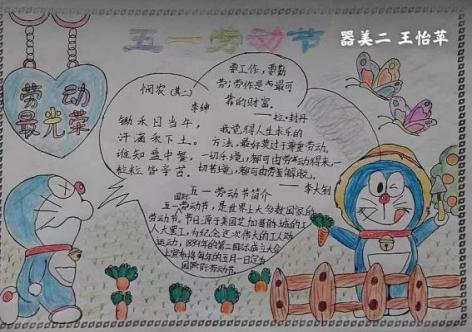 器美二 王怡苹
五一劳动节
劳动
最光荣
悯农（其二）
李绅
锄禾日当午，
汗滴禾下土。
谁知盘中餐，
粒粒皆辛苦。
要工作，要勤
劳：劳作是最可
靠的财富。
我觉得人生求乐的
方法，最好莫过于尊重劳动。
一切乐境，都可由劳动得来，
一切苦境，都可由劳动解脱。
——李大钊
五一劳动节简介
国际
五一劳动节，是世界上大多数国家的
劳动节。节日源于美国芝加哥城的工
人大罢工，为纪念这次伟大的工人
运动，1889年的第二国际成立大会
上宣布将每年的五月一日定为
国际劳动节。